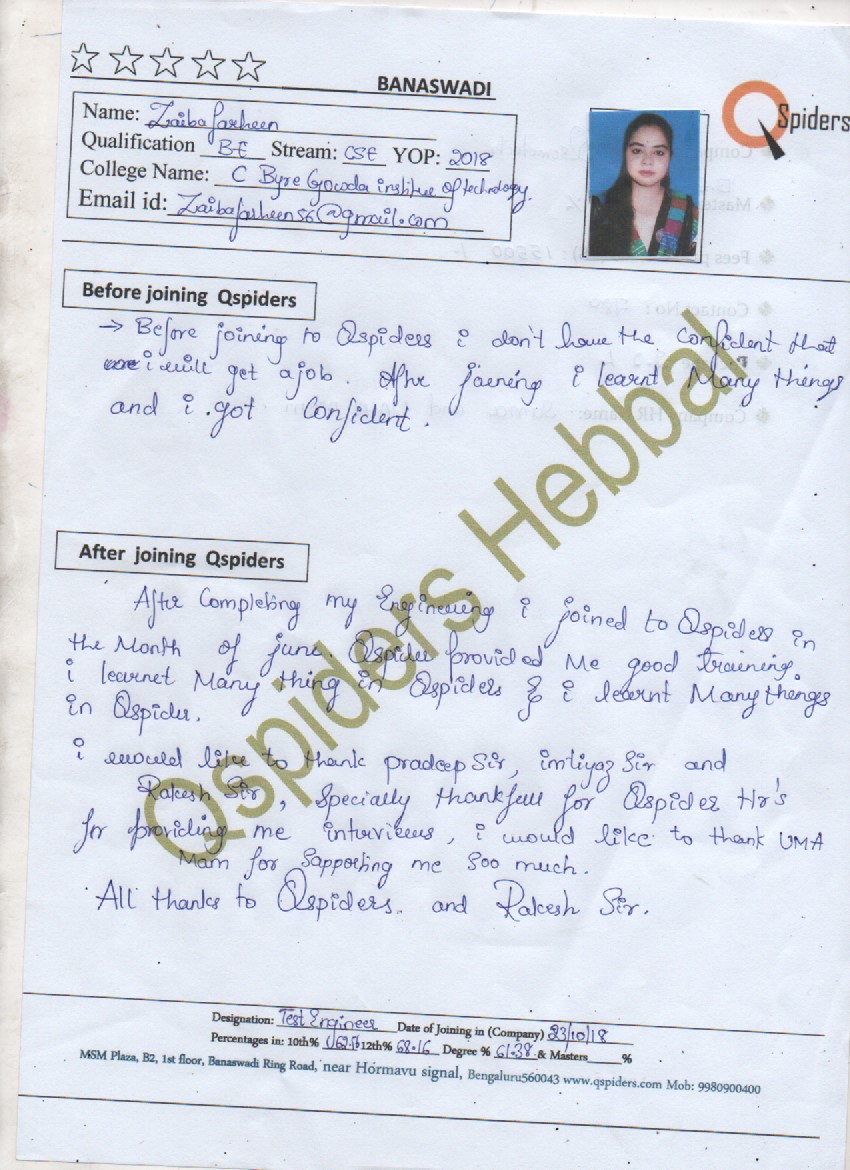 BANASWADI
QSpiders
Name: Zaibafarheen
Qualification B.E Stream: CSE YOP: 2018
College Name: C Byre Gowda institue of technology.
Email id: Zaibafarheen56@gmail.com
Before joining Qspiders
→ Before joining to Qspiders i don't have the confident that
i will get a job. After joening i learnt Many things
and i got Confident.
After joining Qspiders
After Completing my Engineering i joined to Qspiders in
the Month of june. Qspider provided Me good training.
i learnet Many thing in Qspiders & i learnt Many thengs
in Qspider.
i would like to thank pradeep Sir, imtiyaz Sir and
Rakesh Sir, Specially thankfull for Qspider Hr's
for providing me interviews, i would like to thank UMA
Mam for Sapporting me Soo much.
All thanks to Qspiders. and Rakesh Sir.
Qspiders Hebbal
Designation: Test Engineer Date of Joining in (Company) 23/10/18
Percentages in: 10th% 12th% 68.16 Degree % 61.38 & Masters______%
MSM Plaza, B2, 1st floor, Banaswadi Ring Road, near Hormavu signal, Bengaluru560043 www.qspiders.com Mob: 9980900400